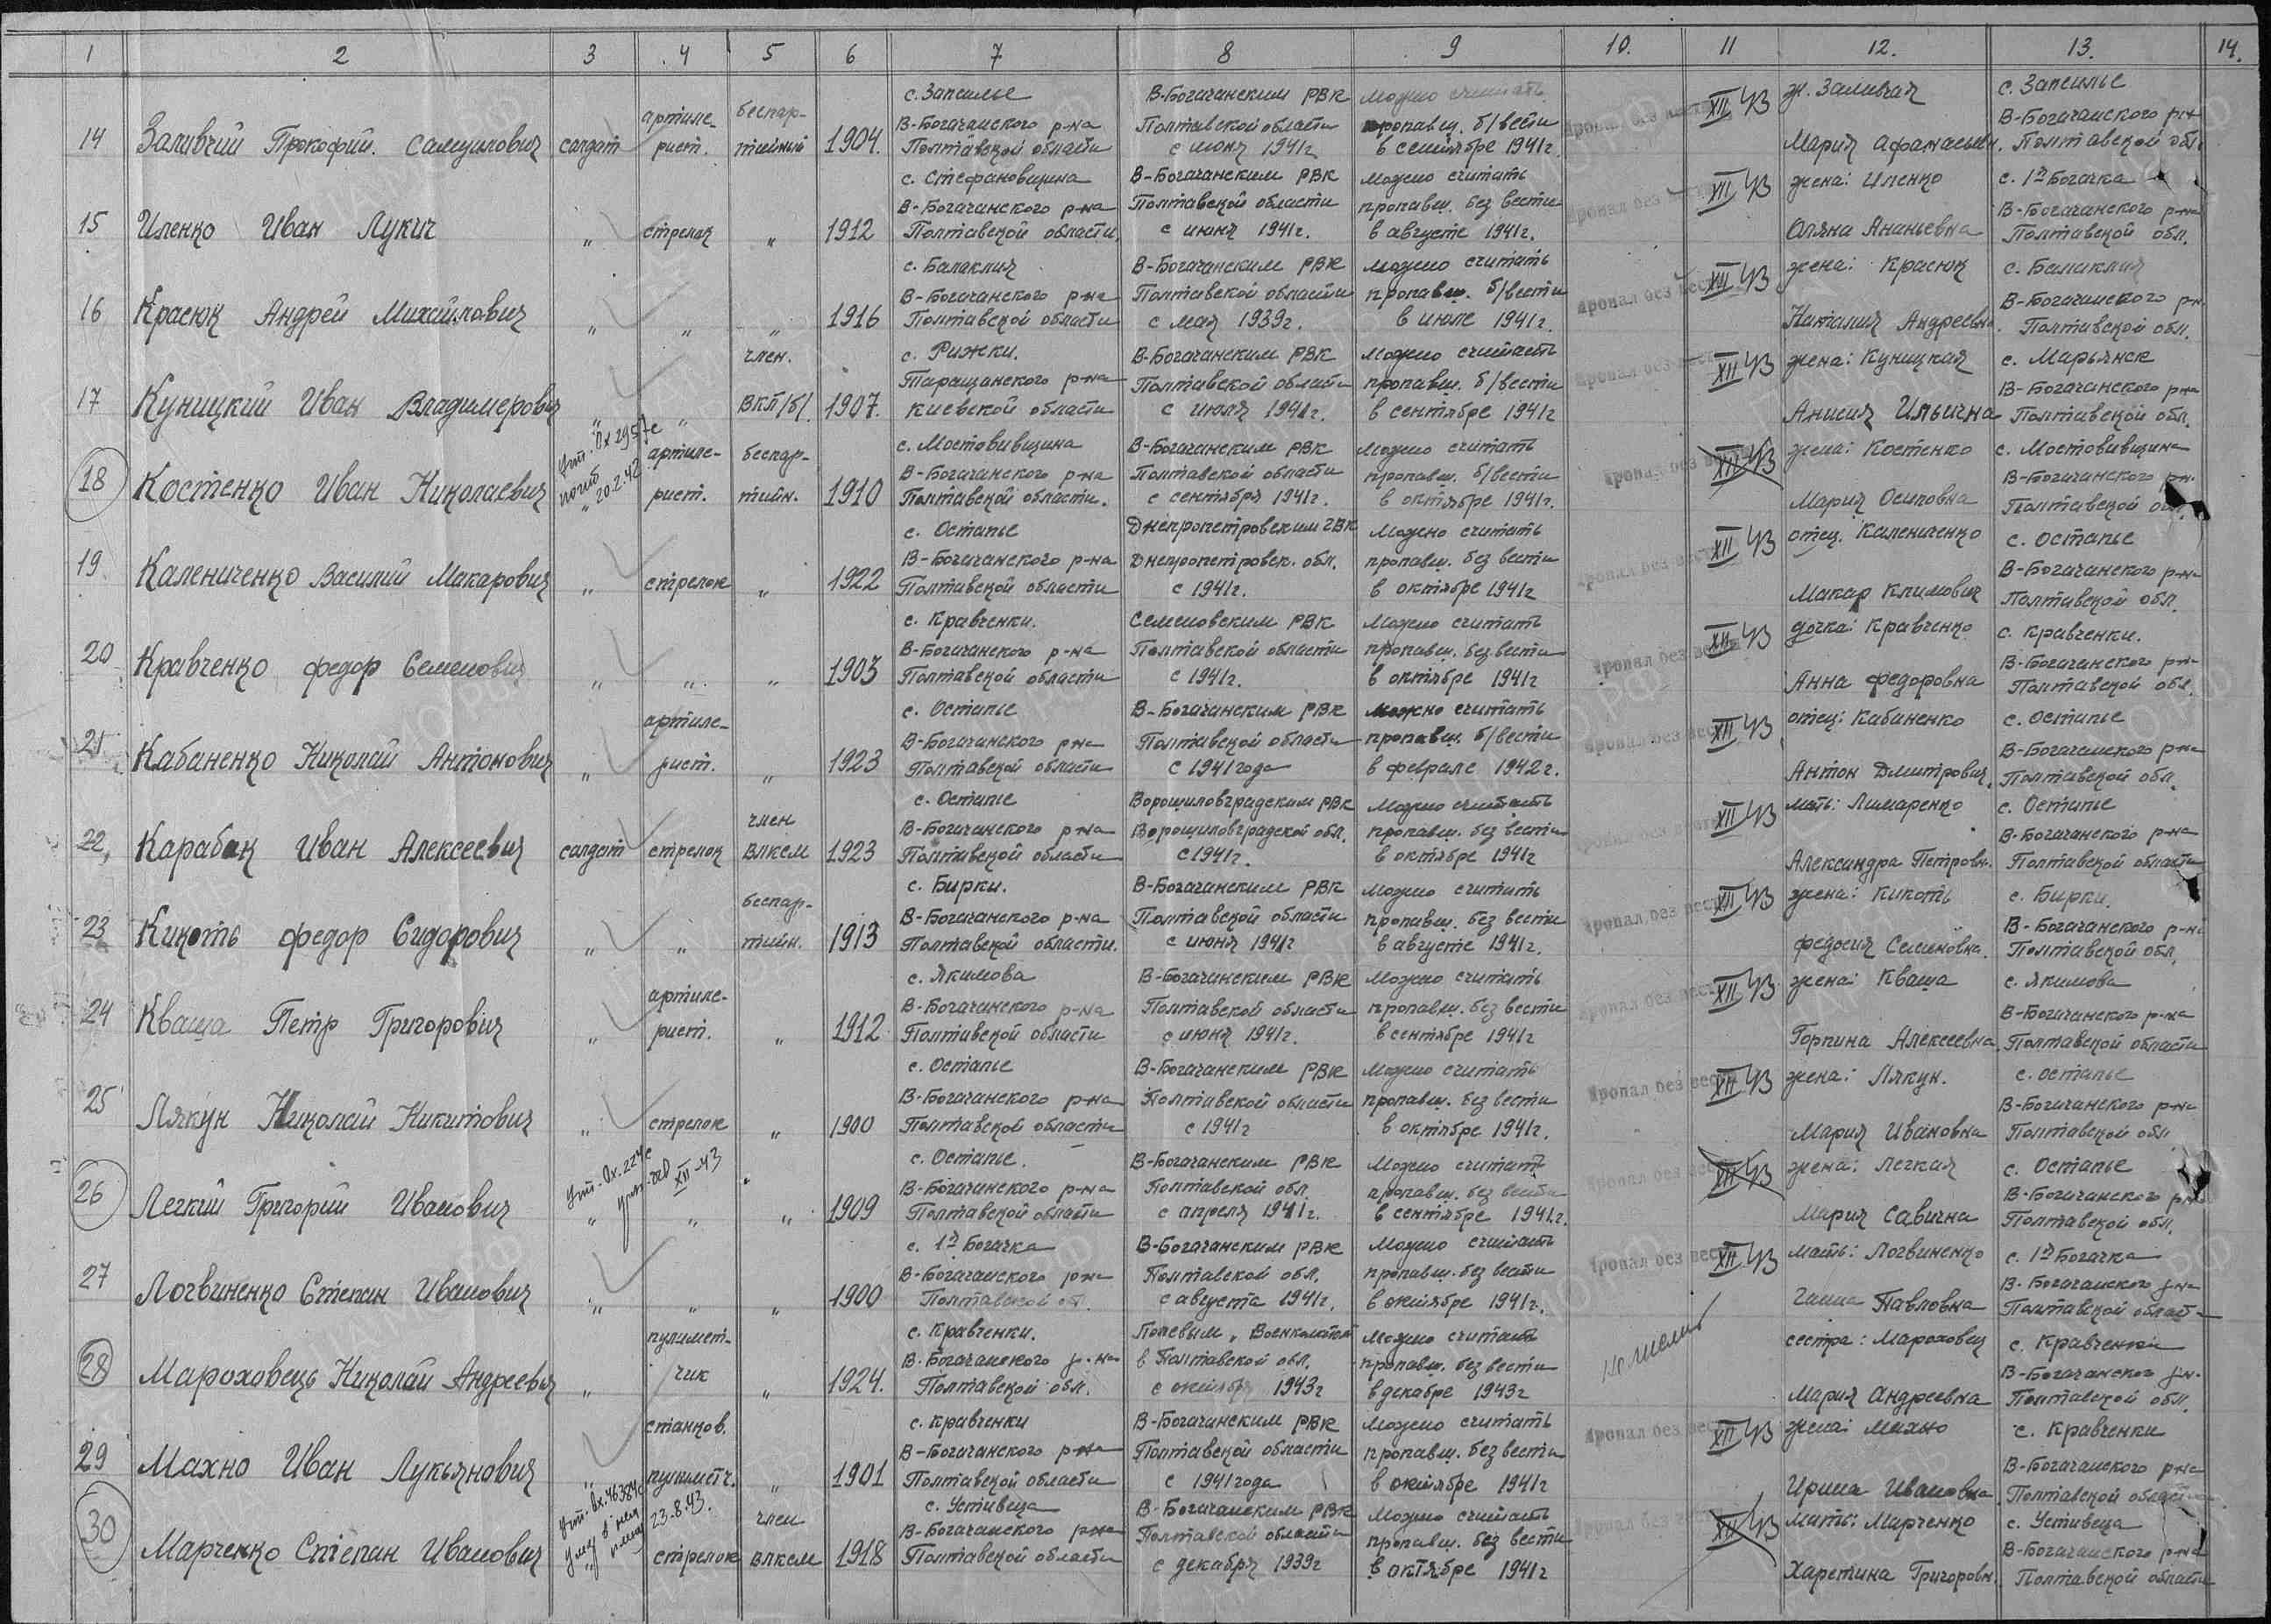 1 2 3 4 5 6 7 8 9 10. 11 12. 13. 14.
14 Заливчий Прокофий Самуилович солдат артиле-рист. беспар-тийный 1904. с. Запсилье В-Богачанского р-на Полтавской области В-Богачанским РВК Полтавской области с июня 1941г. можно считать пропавш. б/вести в сентябре 1941г. Пропал без вести XII 43 ж. Заливчая Мария Афанасьевн. с. Запсилье В-Богачанского р-н Полтавской обл.
15 Иленко Иван Лукич " стрелок " 1912 с. Стефановщина В-Богачанского р-на Полтавской области. В-Богачанским РВК Полтавской области с июня 1941г. можно считать пропавш. без вести в августе 1941г. Пропал без вести XII 43 жена: Иленко Оляна Ананьевна с. 1я Богачка В-Богачанского р-на Полтавской обл.
16 Красюк Андрей Михайлович " " " 1916 с. Балаклия В-Богачанского р-на Полтавской области В-Богачанским РВК Полтавской области с мая 1939г. можно считать пропавш. б/вести в июле 1941г. Пропал без вести XII 43 жена: Красюк Наталия Андреевна. с. Балаклия В-Богачанского р-н. Полтавской обл.
17 Куницкий Иван Владимерович " " член. ВКП/б/. 1907. с. Рижки. Таращанского р-на Киевской области В-Богачанским РВК Полтавской области с июля 1941г. можно считать пропавш. б/вести в сентябре 1941г Пропал без вести XII 43 жена: Куницкая Анисия Ильична с. Марьянск В-Богачанского р-на Полтавской обл.
18 Костенко Иван Николаевич погиб 20.2.42 " артиле-рист. беспар-тийн. 1910 с. Мостовивщина В-Богачанского р-на Полтавской области. В-Богачанским РВК Полтавской области с сентября 1941г. Можно считать пропавш. б/вести в октябре 1941г. Пропал без вести XII 43 жена: Костенко Мария Осиповна с. Мостовивщина В-Богачанского р-н. Полтавской обл.
19 Калениченко Василий Макарович " стрелок " 1922 с. Остапье В-Богачанского р-на Полтавской области Днепропетровским ГВК Днепропетровск. обл. с 1941г. Можно считать пропавш. без вести в октябре 1941г Пропал без вести XII 43 отец. Калениченко Макар Климович с. Остапье В-Богачанского р-на Полтавской обл.
20 Кравченко Федор Семенович " " " 1903 с. Кравченки. В-Богачанского р-на Полтавской области Семеновским РВК Полтавской области с 1941г. Можно считать пропавш. без вести в октябре 1941г Пропал без вести XII 43 дочка: Кравченко Анна Федоровна с. Кравченки. В-Богачанского р-н Полтавской обл.
21 Кабаненко Николай Антонович " артиле-рист. " 1923 с. Остапье В-Богачанского р-на Полтавской области В-Богачанским РВК Полтавской области с 1941 года можно считать пропавш. б/вести в феврале 1942г. Пропал без вести XII 43 отец: Кабаненко Антон Дмитрович. с. Остапье В-Богачанского р-на Полтавской обл.
22, Карабак Иван Алексеевич солдат стрелок член ВЛКСМ 1923 с. Остапье В-Богачанского р-на Полтавской области Ворошиловградским РВК Ворошиловградской обл. с 1941г. Можно считать пропавш. без вести в октябре 1941г XII 43 мать: Лимаренко Александра Петровн. с. Остапье В-Богачанского р-на Полтавской области
23 Кикоть Федор Сидорович " " беспар-тийн. 1913 с. Бирки. В-Богачанского р-на Полтавской области. В-Богачанским РВК Полтавской области с июня 1941г можно считать пропавш. без вести в августе 1941г. Пропал без вести XII 43 жена: Кикоть Федосия Семеновна. с. Бирки. В-Богачанского р-н Полтавской обл.
24 Кваша Петр Григорович " артиле-рист. " 1912 с. Якимова В-Богачанского р-на Полтавской области В-Богачанским РВК Полтавской области с июня 1941г. Можно считать пропавш. без вести в сентябре 1941г Пропал без вести XII 43 жена: Кваша Горпина Алексеевна. с. Якимова В-Богачанского р-на Полтавской области
25 Лякун Николай Никитович " стрелок " 1900 с. Остапье В-Богачанского р-на Полтавской области В-Богачанским РВК Полтавской области с 1941г Можно считать пропавш. без вести в октябре 1941г. Пропал без вести XII 43 жена: Лякун. Мария Ивановна с. Остапье В-Богачанского р-на Полтавской обл
26 Легкий Григорий Иванович XII-43 " " " 1909 с. Остапье. В-Богачанского р-на Полтавской области В-Богачанским РВК Полтавской обл. с апреля 1941г. Можно считать пропавш. без вести в сентябре 1941г. Пропал без вести XII 43 жена: Легкая Мария Савична с. Остапье В-Богачанского р-на Полтавской обл.
27 Логвиненко Степан Иванович " " " 1900 с. 1я Богачка В-Богачанского р-на Полтавской об. В-Богачанским РВК Полтавской обл. с августа 1941г. Можно считать пропавш. без вести в октябре 1941г. Пропал без вести XII 43 мать: Логвиненко Ганна Павловна с. 1я Богачка В-Богачанского р-на Полтавской област
28 Мароховець Николай Андреевич " пулимет-чик " 1924. с. Кравченки. В-Богачанского р-на Полтавской обл. Полевым Военкоматом в Полтавской обл. с октября 1943г Можно считать пропавш. без вести в декабре 1943г сестра: Мароховец Мария Андреевна с. Кравченки В-Богачанского р-н. Полтавской обл.
29 Махно Иван Лукьянович " станков. пулиметч. " 1901 с. Кравченки В-Богачанского р-на Полтавской области В-Богачанским РВК Полтавской области с 1941 года Можно считать пропавш. без вести в октябре 1941г Пропал без вести XII 43 жена: Махно Ирина Ивановна с. Кравченки В-Богачанского р-на Полтавской области
30 Марченко Степан Иванович 23.8.43. стрелок член ВЛКСМ 1918 с. Устивеца В-Богачанского р-на Полтавской области В-Богачанским РВК Полтавской области с декабря 1939г Можно считать пропавш. без вести в октябре 1941г XII 43 мать: Марченко Харетина Григоровн. с. Устивеца В-Богачанского р-на Полтавской области